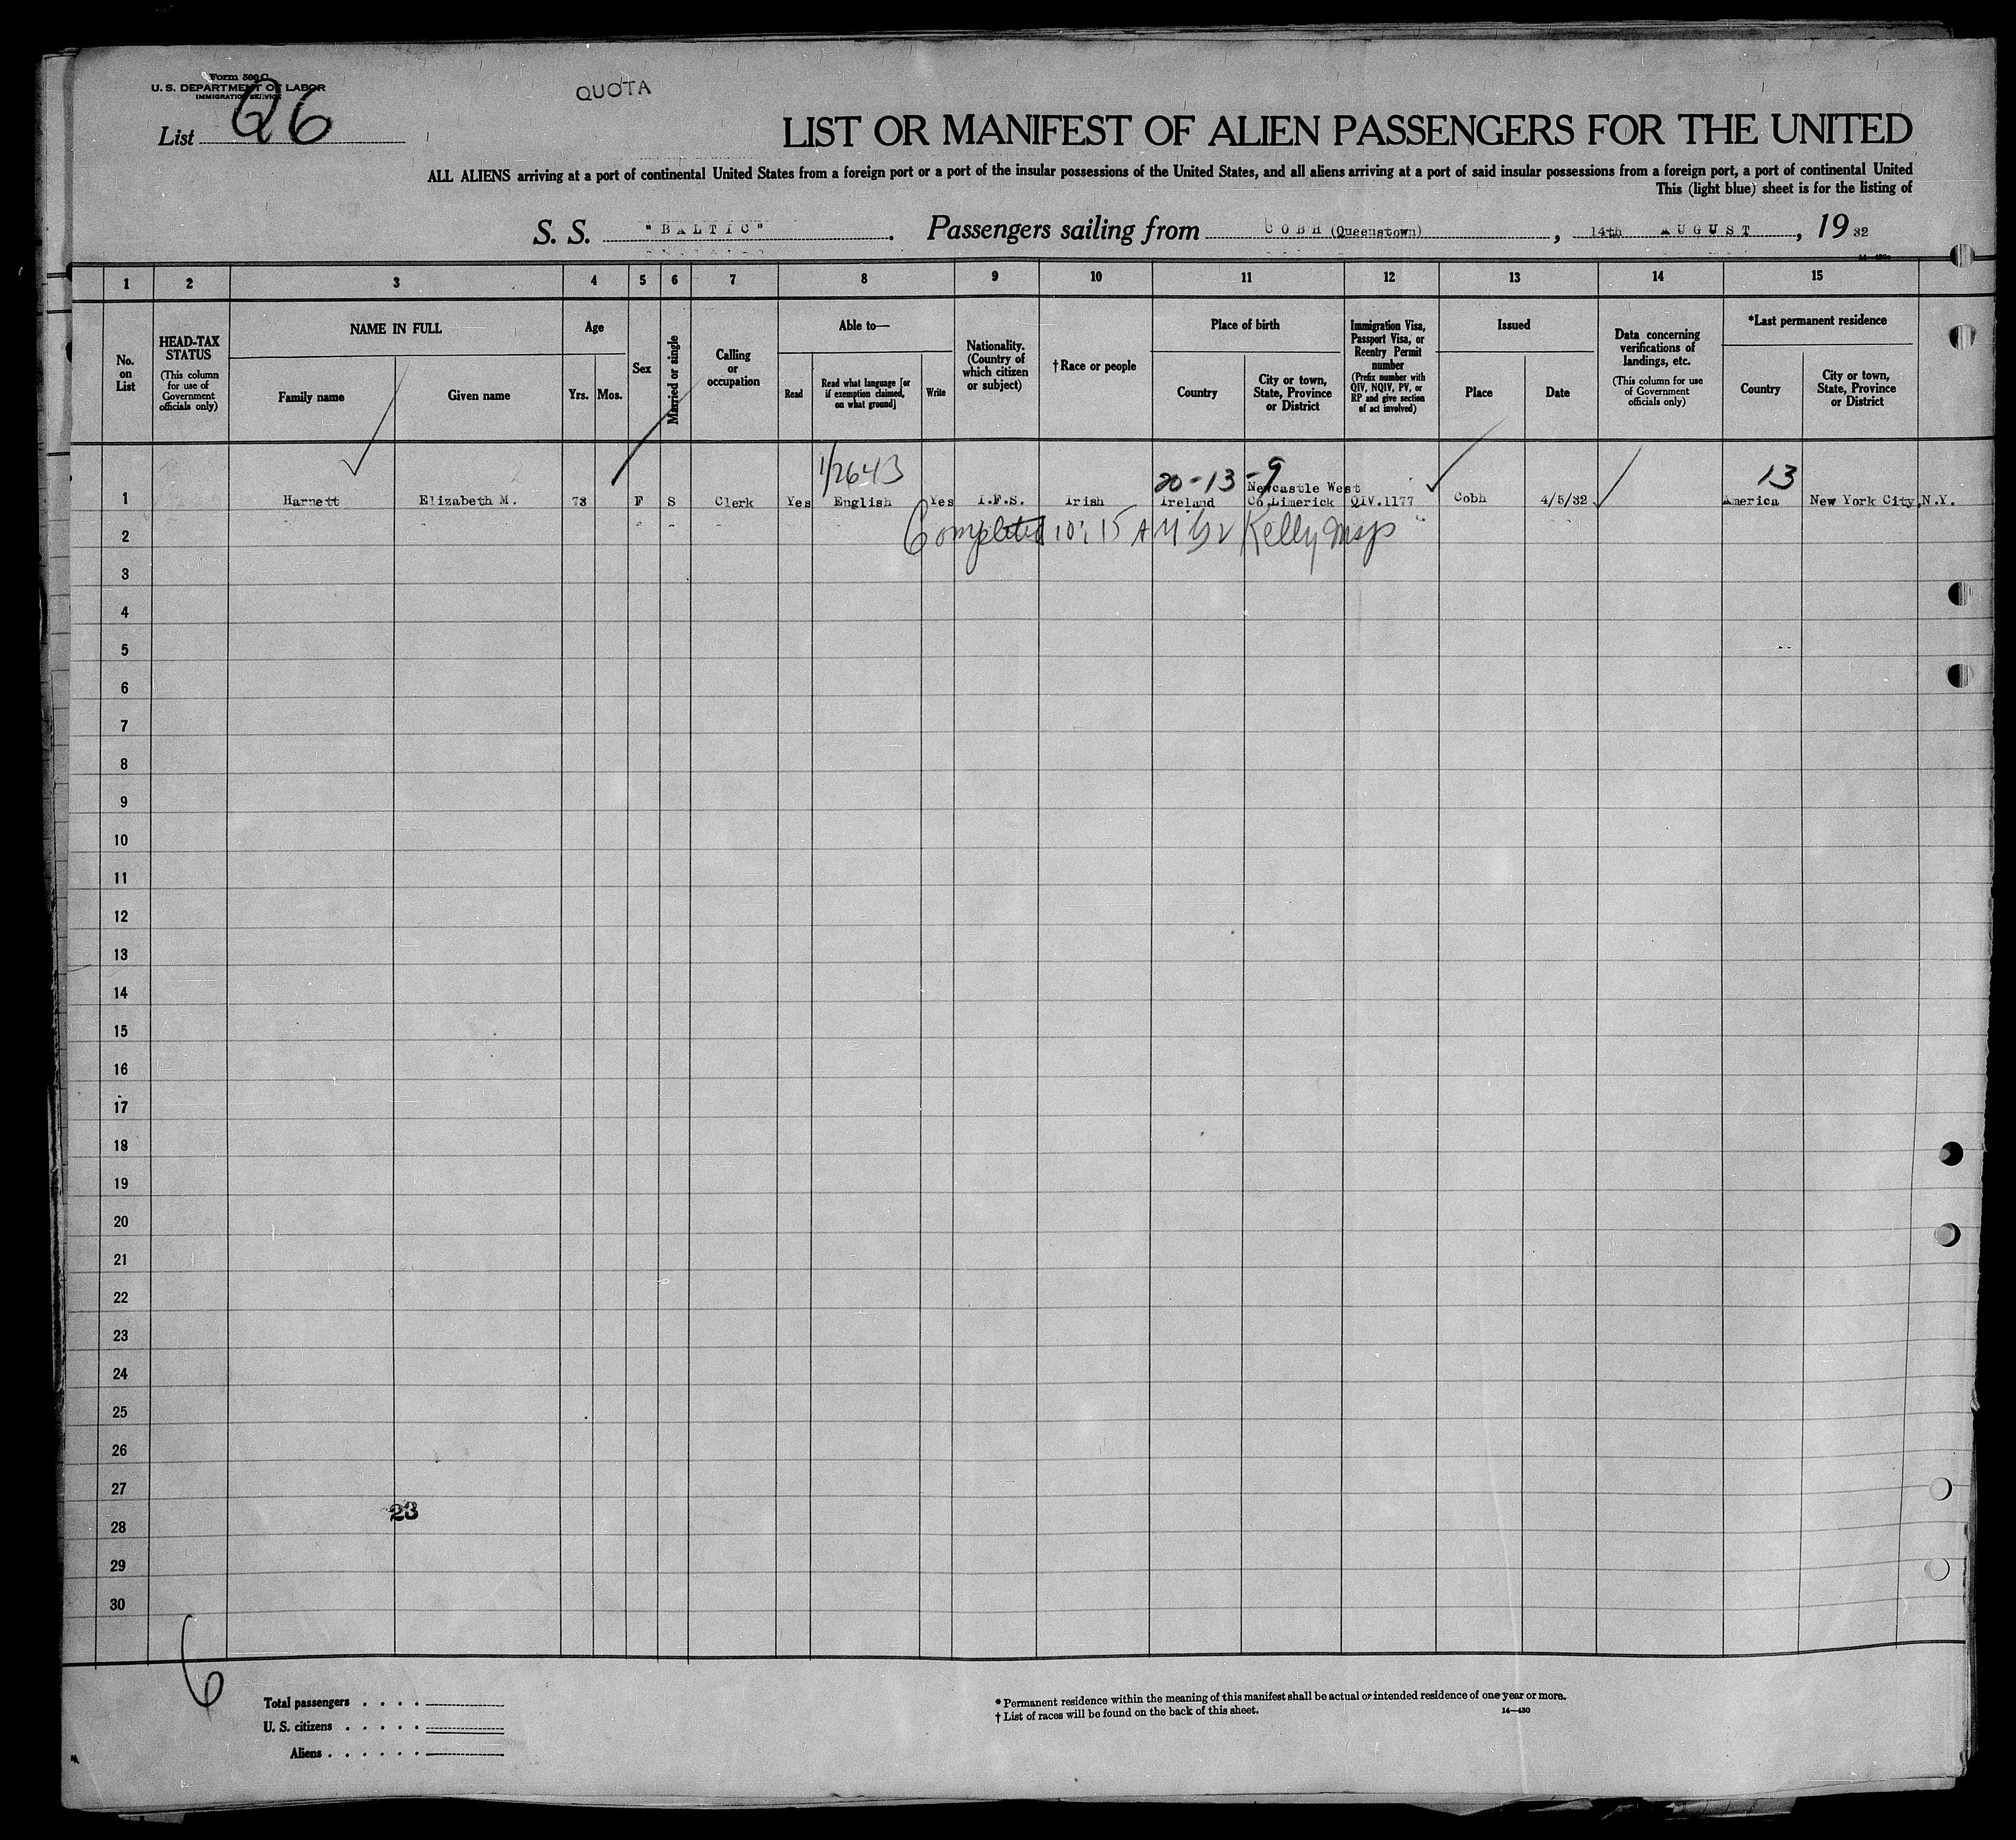 Form 500 C
U. S. DEPARTMENT OF LABOR
IMMIGRATION SERVICE
QUOTA
List 26
LIST OR MANIFEST OF ALIEN PASSENGERS FOR THE UNITED
ALL ALIENS arriving at a port of continental United States from a foreign port or a port of the insular possessions of the United States, and all aliens arriving at a port of said insular possessions from a foreign port, a port of continental United
This (light blue) sheet is for the listing of
S. S. "BALTIC". Passengers sailing from COBH (Queenstown), 14th AUGUST, 19 32
1 2 3 4 5 6 7 8 9 10 11 12 13 14 15
No. on List
HEAD-TAX STATUS (This column for use of Government officials only)
NAME IN FULL
Family name
Given name
Age
Yrs. Mos.
Sex
Married or single
Calling or occupation
Able to—
Read
Read what language [or if exemption claimed, on what ground]
Write
Nationality. (Country of which citizen or subject)
† Race or people
Place of birth
Country
City or town, State, Province or District
Immigration Visa, Passport Visa, or Reentry Permit number (Prefix number with QIV, NQIV, PV, or RP and give section of act involved)
Issued
Place
Date
Data concerning verifications of landings, etc. (This column for use of Government officials only)
*Last permanent residence
Country
City or town, State, Province or District
20-13-9 13
1 Harnett Elizabeth M. F S Clerk Yes English Yes I.F.S. Irish Ireland Newcastle West Co.Limerick QIV.1177 Cobh 4/5/32 America New York City,N.Y.
2 Completed 10:15 AM Kelly
3
4
5
6
7
8
9
10
11
12
13
14
15
16
17
18
19
20
21
22
23
24
25
26
27
23
28
29
30
6
Total passengers . . . .
U. S. citizens . . . . .
Aliens . . . . . .
* Permanent residence within the meaning of this manifest shall be actual or intended residence of one year or more.
† List of races will be found on the back of this sheet.
14—430